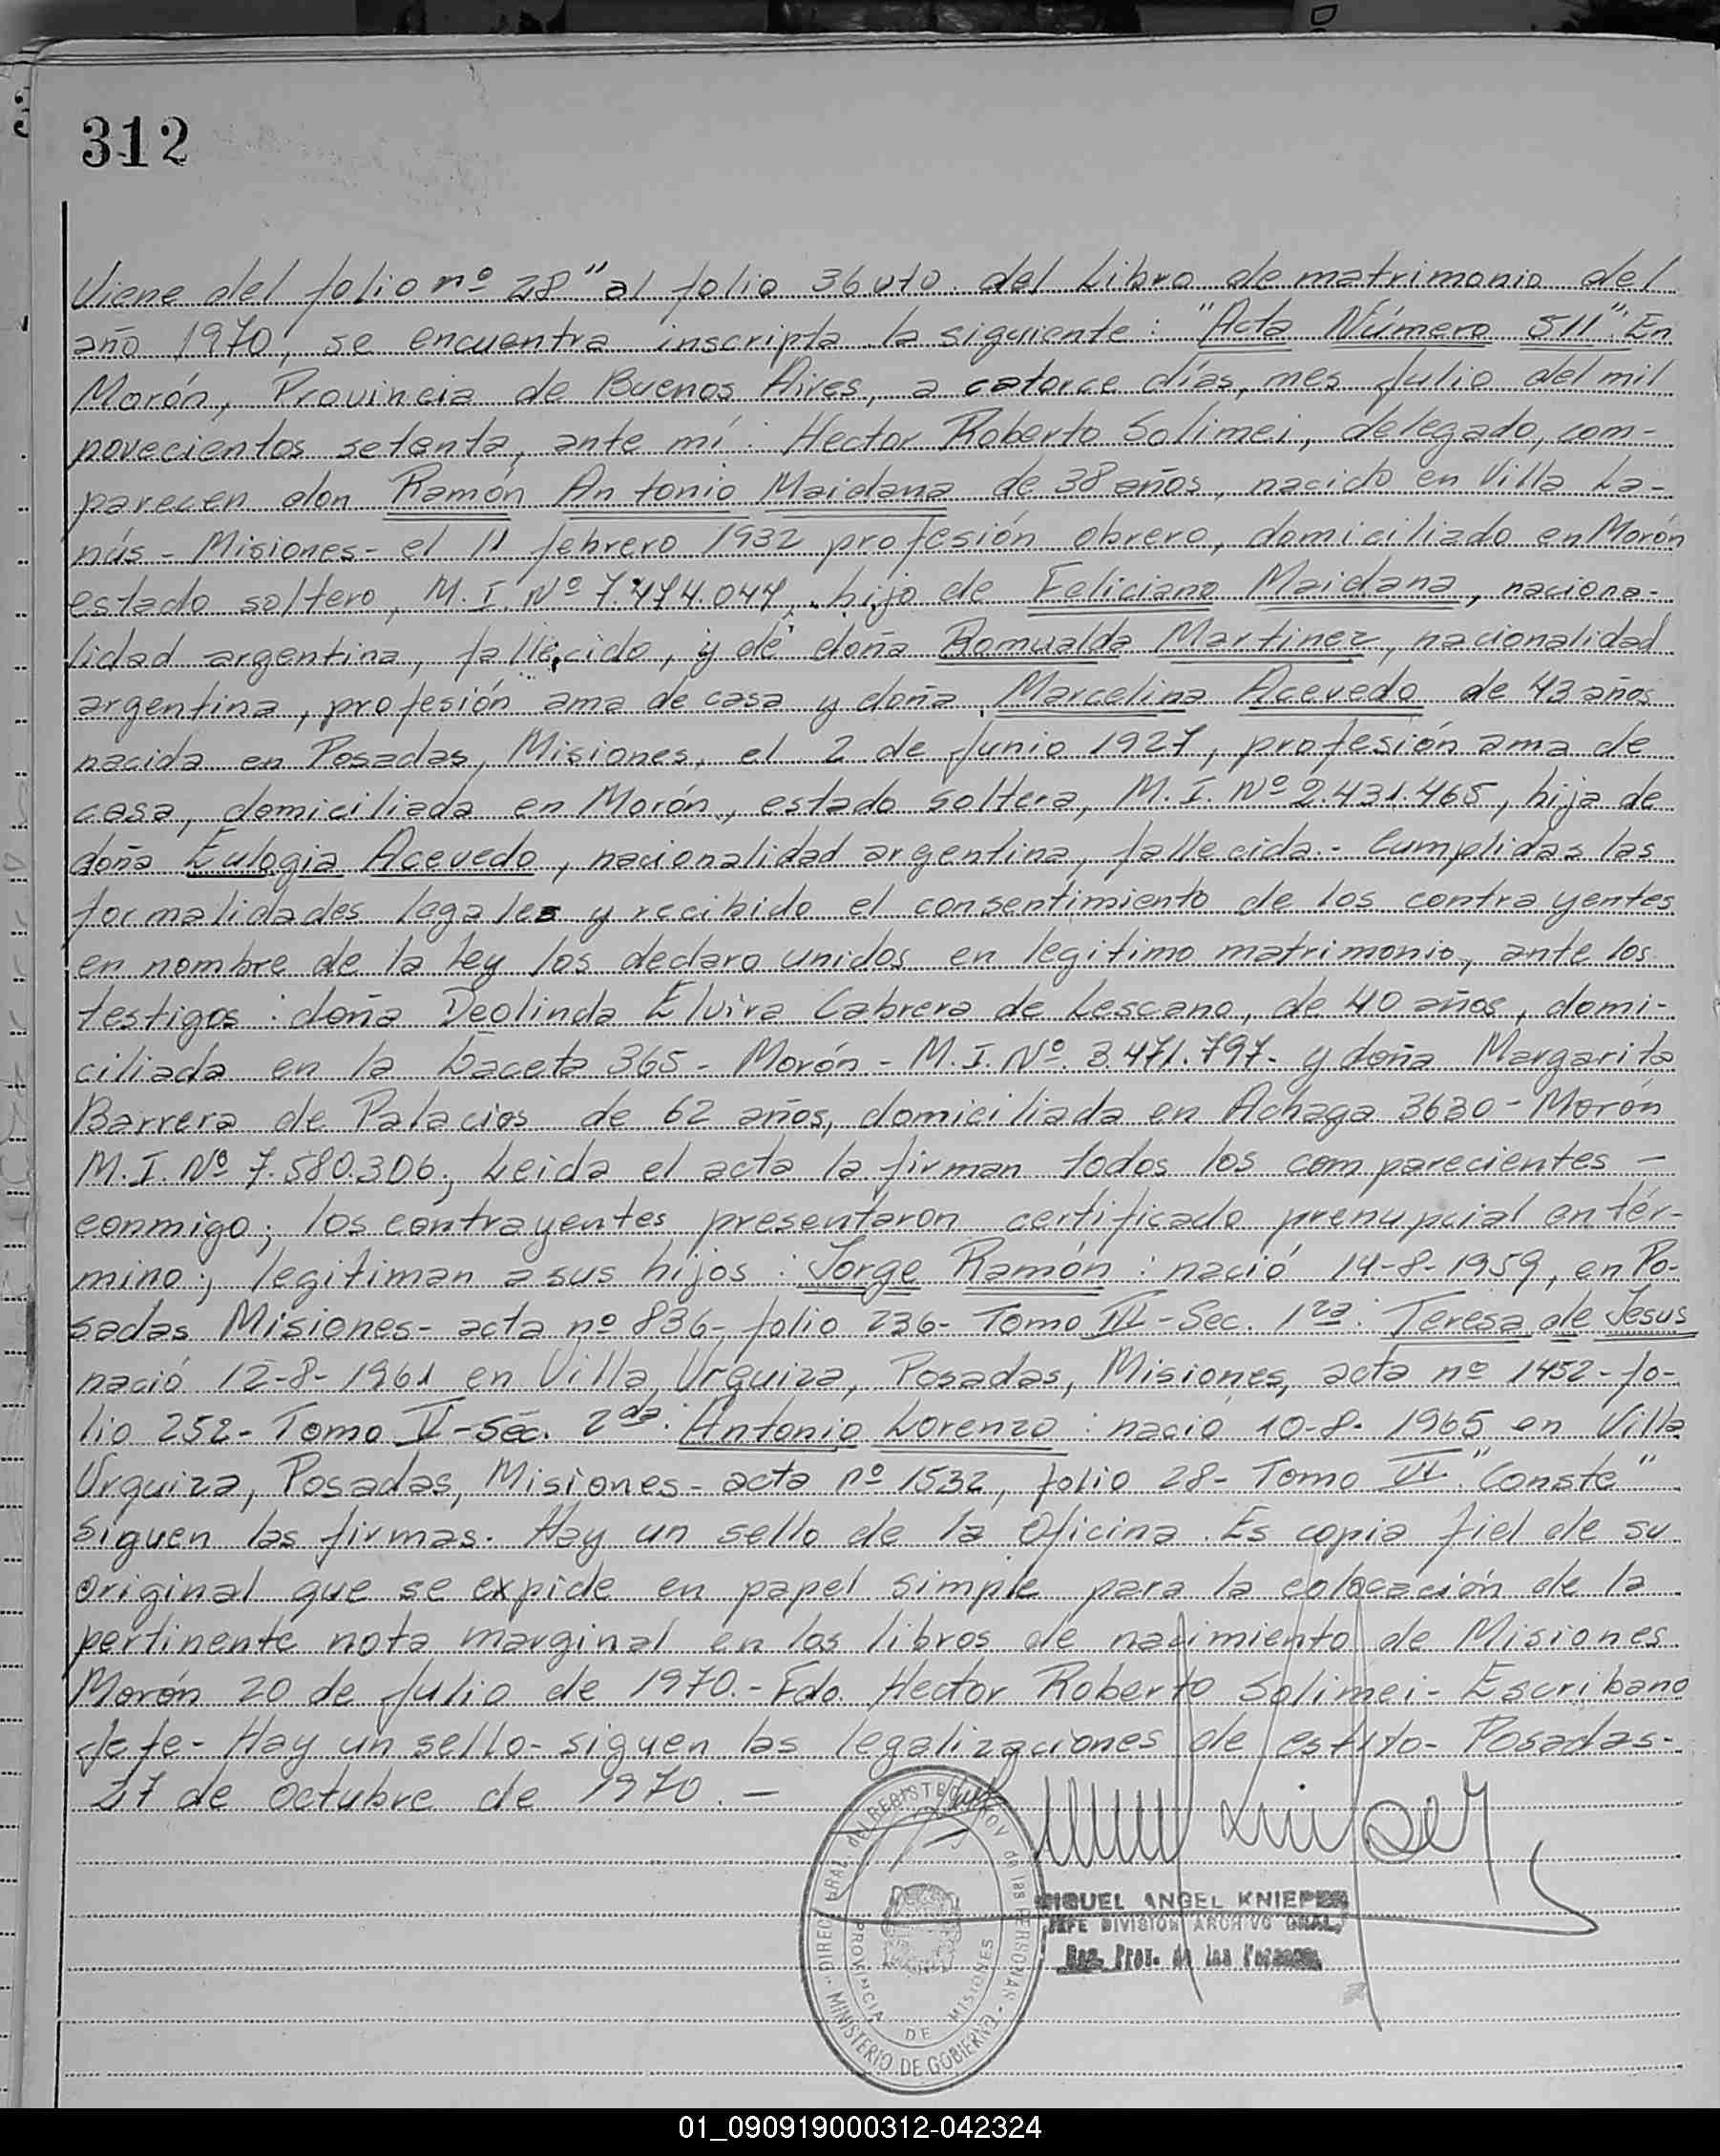 312
Viene del folio nº 28 "al folio 36 vto. del Libro de matrimonio del
año 1970, se encuentra inscripta la siguiente: "Acta Número 511". En
Morón, Provincia de Buenos Aires, a catorce días, mes Julio del mil
novecientos setenta, ante mí: Hector Roberto Solimei, delegado, com-
parecen don Ramón Antonio Maidana de 38 años, nacido en Villa La-
nús - Misiones - el 11 febrero 1932 profesión obrero, domiciliado en Morón
estado soltero, M.I. Nº 7.474.044, hijo de Feliciano Maidana, naciona-
lidad argentina, fallecido, y de doña Romualda Martinez, nacionalidad
argentina, profesión ama de casa y doña Marcelina Acevedo de 43 años
nacida en Posadas, Misiones, el 2 de Junio 1927, profesión ama de
casa, domiciliada en Morón, estado soltera, M.I. Nº 2.431.465, hija de
doña Eulogia Acevedo, nacionalidad argentina, fallecida.- Cumplidas las
formalidades legales y recibido el consentimiento de los contrayentes
en nombre de la Ley los declaro unidos en legitimo matrimonio, ante los
testigos: doña Deolinda Elvira Cabrera de Lescano, de 40 años, domi-
ciliada en la Gaceta 365 - Morón - M.I. Nº 3.471.797- y doña Margarita
Barrera de Palacios de 62 años, domiciliada en Achaga 3630 - Morón
M.I. Nº 7.580.306; Leida el acta la firman todos los comparecientes -
conmigo; los contrayentes presentaron certificado prenupcial en tér-
mino; legitiman a sus hijos: Jorge Ramón: nació 14-8-1959, en Po-
sadas Misiones - acta nº 836 - folio 236 - Tomo III - Sec. 1ra: Teresa de Jesus
nació 12-8-1961 en Villa Urquiza, Posadas, Misiones, acta nº 1452 - fo-
lio 252 - Tomo V - Sec. 2da: Antonio Lorenzo: nació 10-8-1965 en Villa
Urquiza, Posadas, Misiones - acta nº 1532, folio 28 - Tomo VI. "Conste"
siguen las firmas. Hay un sello de la Oficina. Es copia fiel de su
original que se expide en papel simple para la colocación de la
pertinente nota marginal en los libros de nacimiento de Misiones
Morón 20 de Julio de 1970.- Fdo. Hector Roberto Solimei - Escribano
Jefe - Hay un sello - siguen las legalizaciones de estilo - Posadas -
27 de Octubre de 1970. -
DIREC. GRAL. del REGISTRO PROV. de las PERSONAS
PROVINCIA DE MISIONES
MINISTERIO DE GOBIERNO
MIGUEL ANGEL KNIEPER
JEFE DIVISION ARCHIVO GRAL.
Reg. Prov. de las Personas
01_090919000312-042324